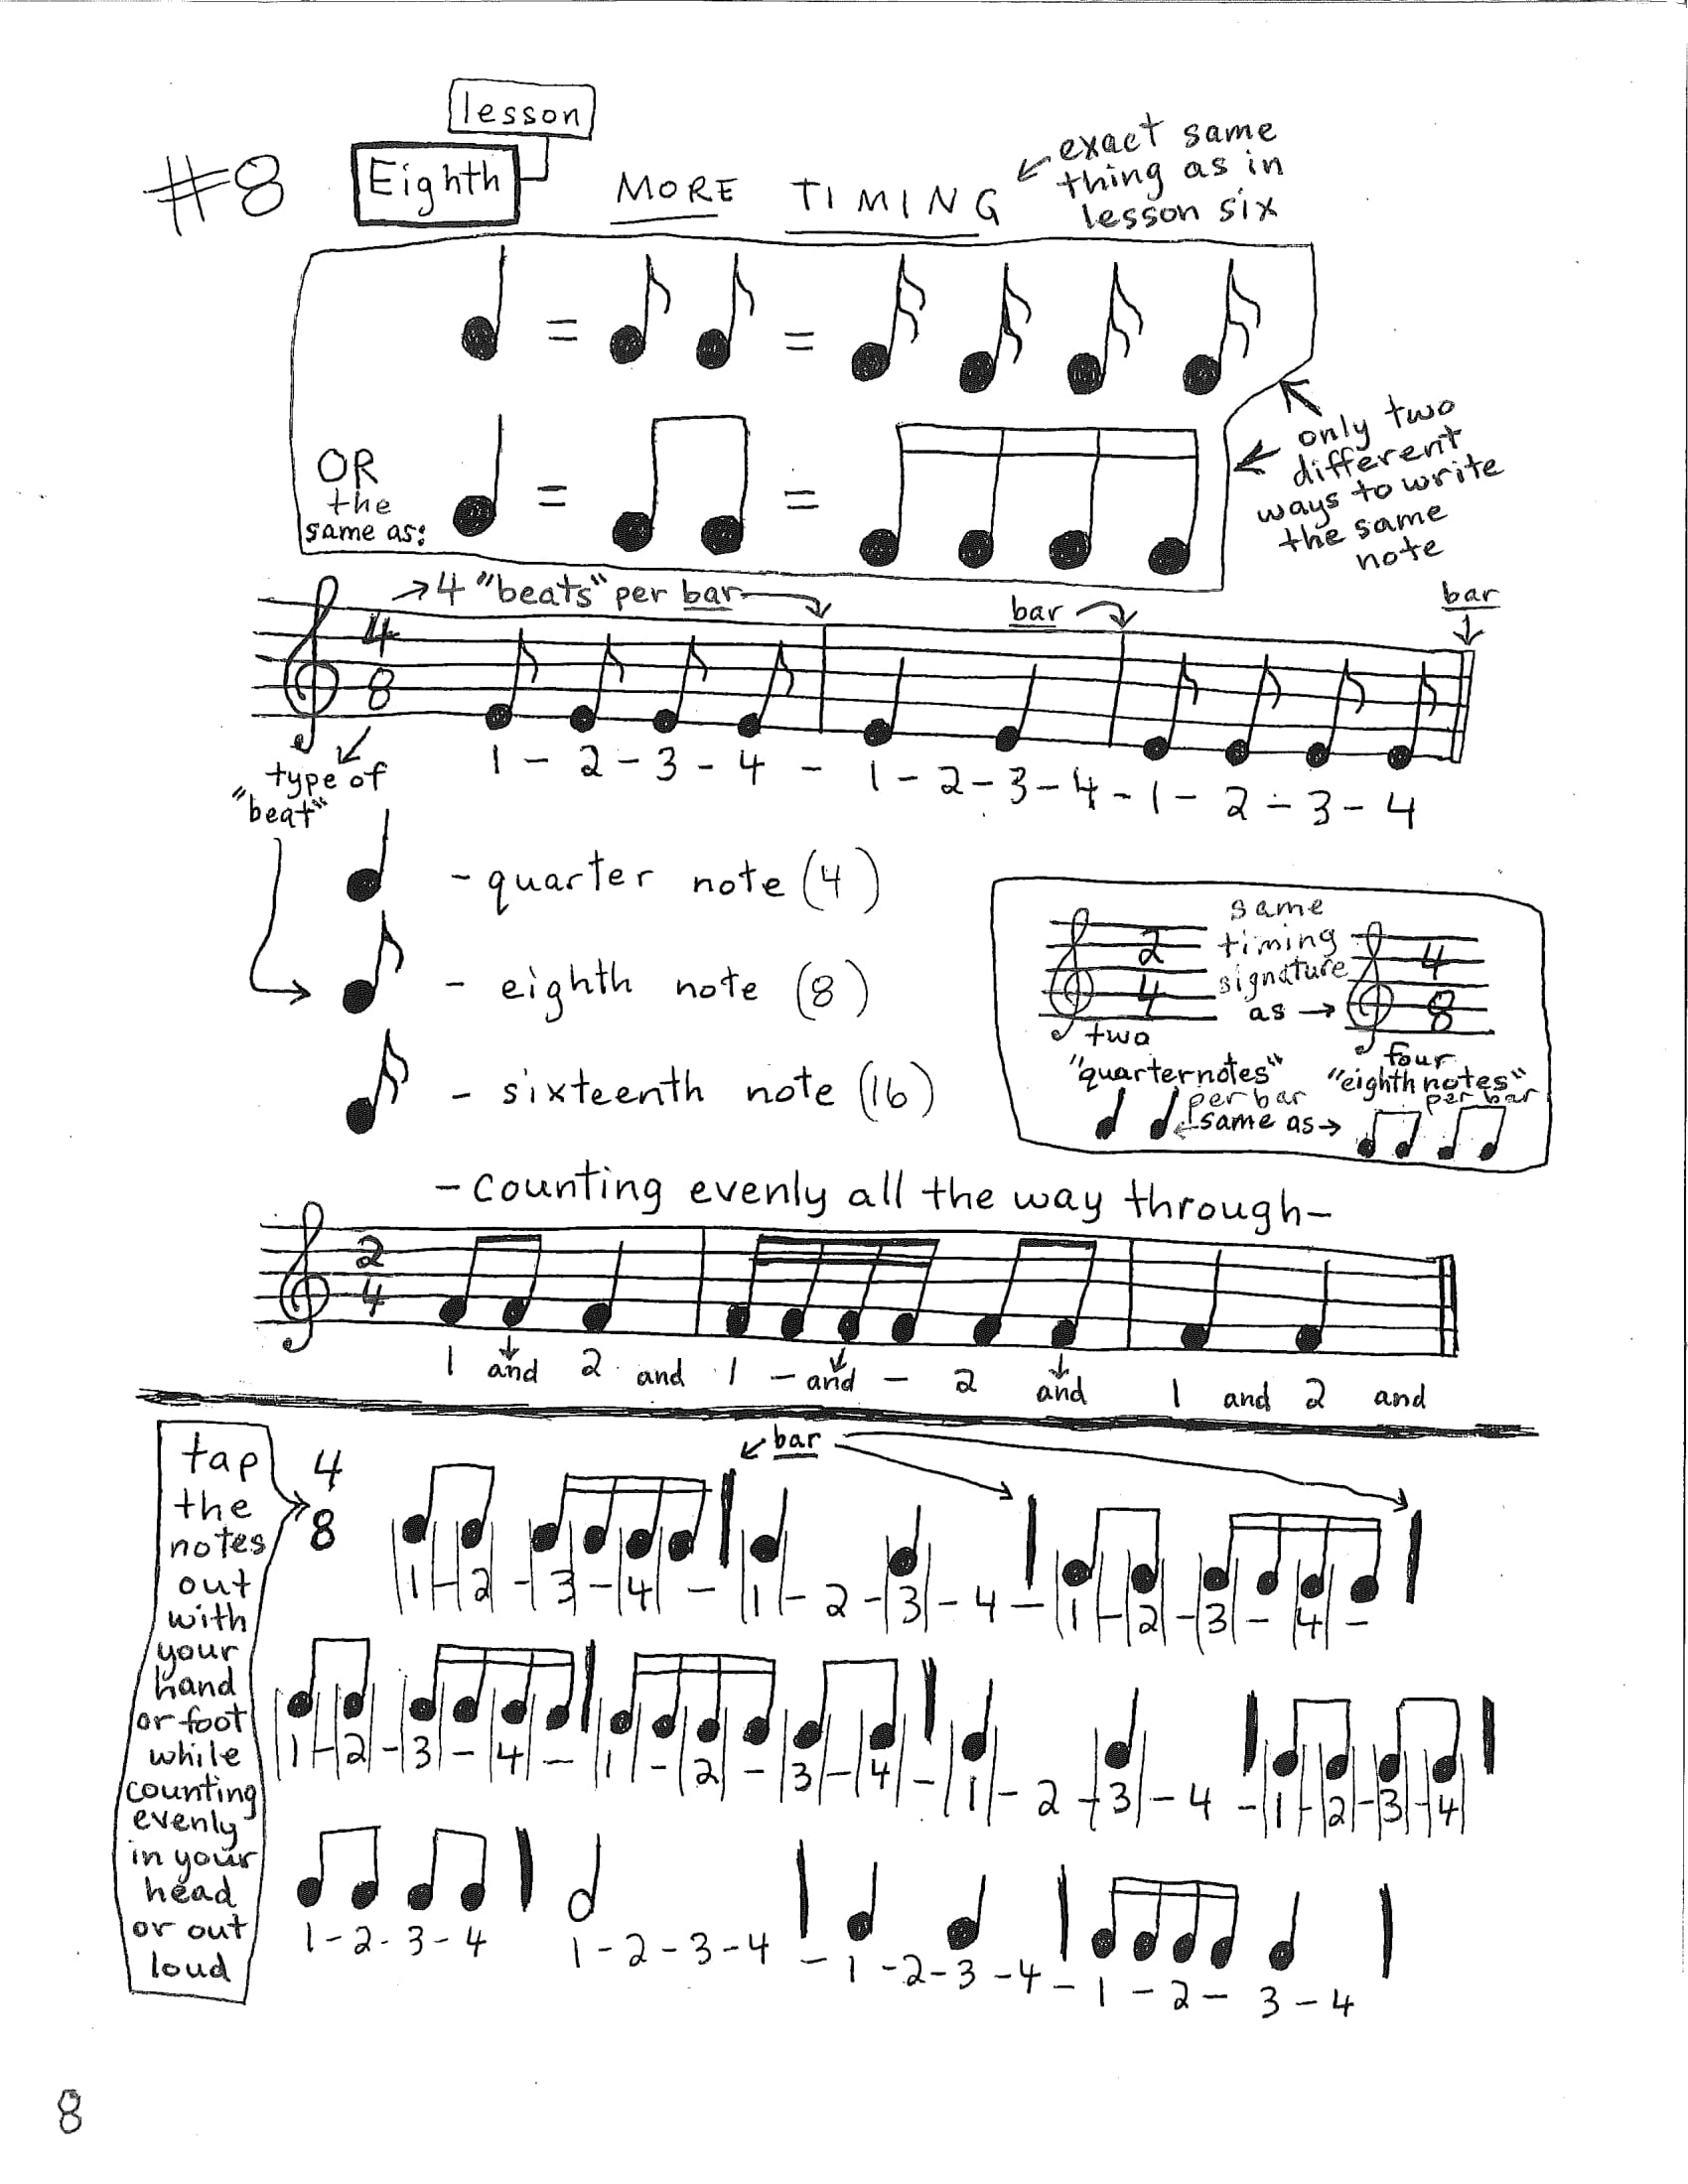 lesson
#8 Eighth MORE TIMING
exact same
thing as in
lesson six
= =
OR
the
same as:
= =
only two
different
ways to write
the same
note
4 "beats" per bar
bar
bar
4
8
type of
"beat"
1 - 2 - 3 - 4 - 1 - 2 - 3 - 4 - 1 - 2 - 3 - 4
- quarter note (4)
- eighth note (8)
- sixteenth note (16)
2
4
same
timing
signature
as →
4
8
two
"quarternotes"
per bar
four
"eighthnotes"
per bar
same as
- counting evenly all the way through -
2
4
1 and 2 and 1 - and - 2 and 1 and 2 and
tap
the
notes
out
with
your
hand
or foot
while
counting
evenly
in your
head
or out
loud
bar
4
8
1 - 2 - 3 - 4 - 1 - 2 - 3 - 4 - 1 - 2 - 3 - 4 -
1 - 2 - 3 - 4 - 1 - 2 - 3 - 4 - 1 - 2 - 3 - 4 - 1 - 2 - 3 - 4
1 - 2 - 3 - 4 1 - 2 - 3 - 4 - 1 - 2 - 3 - 4 - 1 - 2 - 3 - 4
8